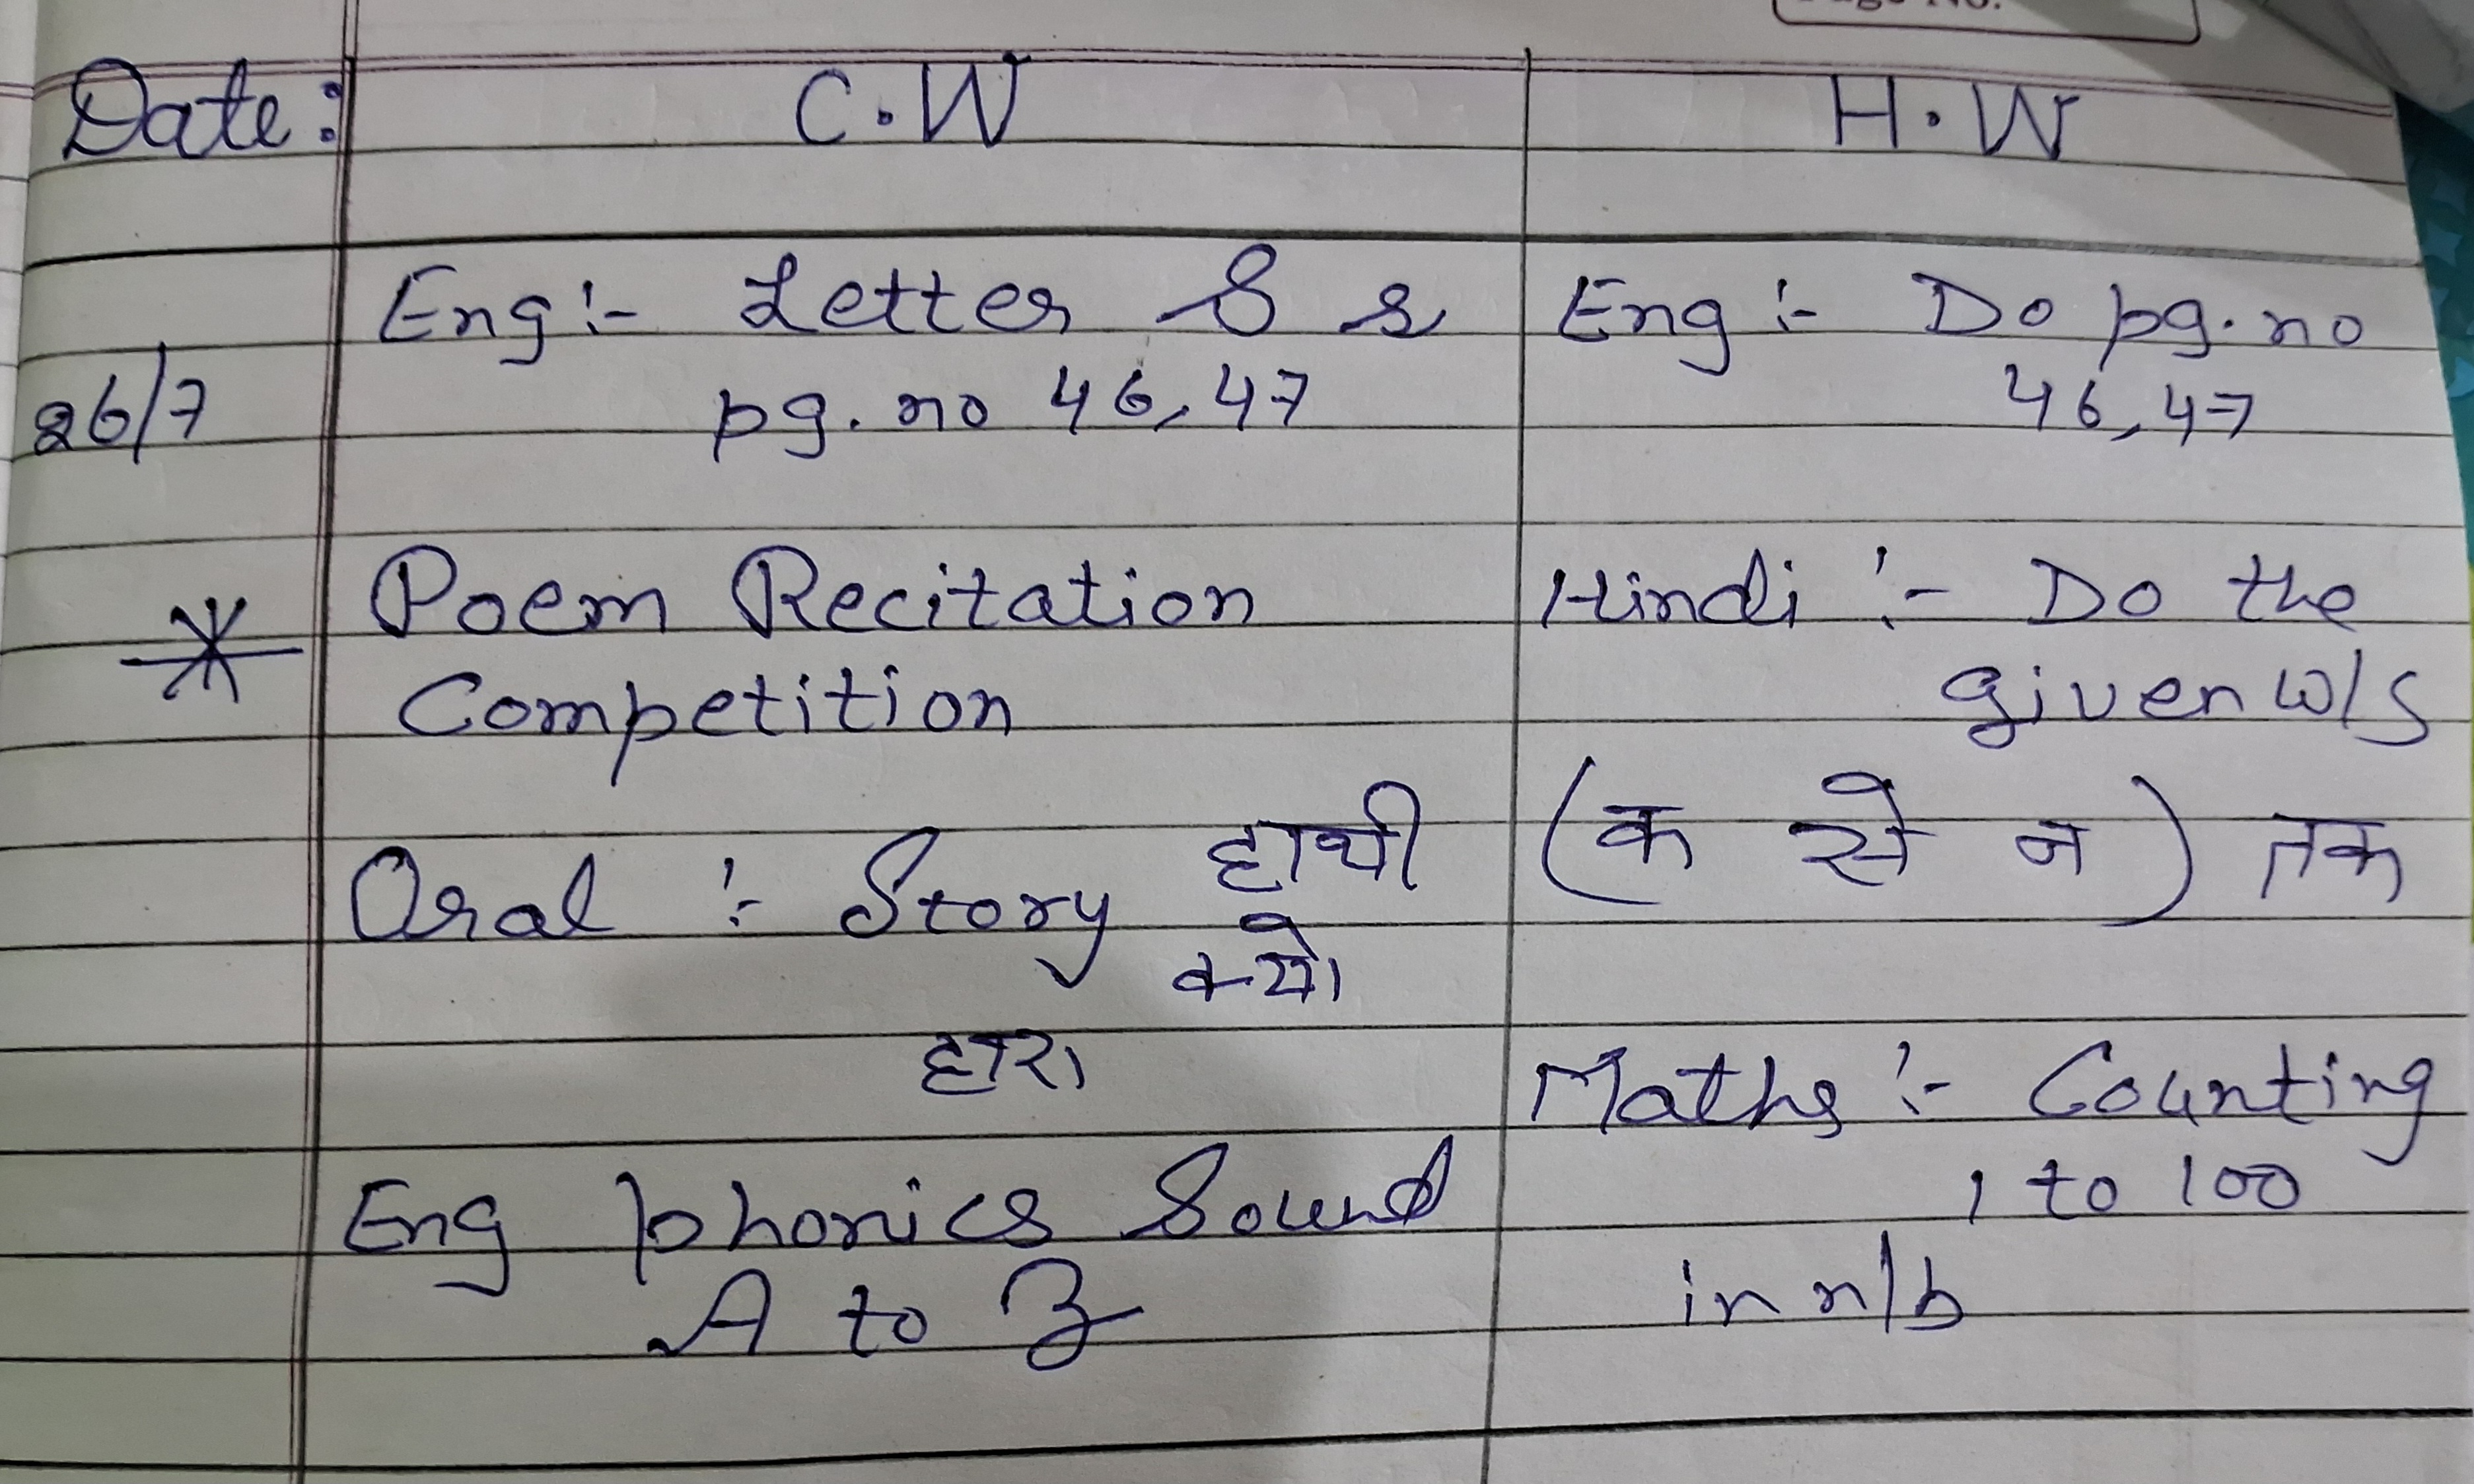 Page No.
Date: C.W H.W
Eng:- Letter S s
pg. no 46, 47
26/7
* Poem Recitation
Competition
Oral :- Story हाथी
क्यो
हारा
Eng phonics Sound
A to Z
Eng :- Do pg. no
46, 47
Hindi :- Do the
given w/s
(क से न) तक
Maths :- Counting
1 to 100
in n/b